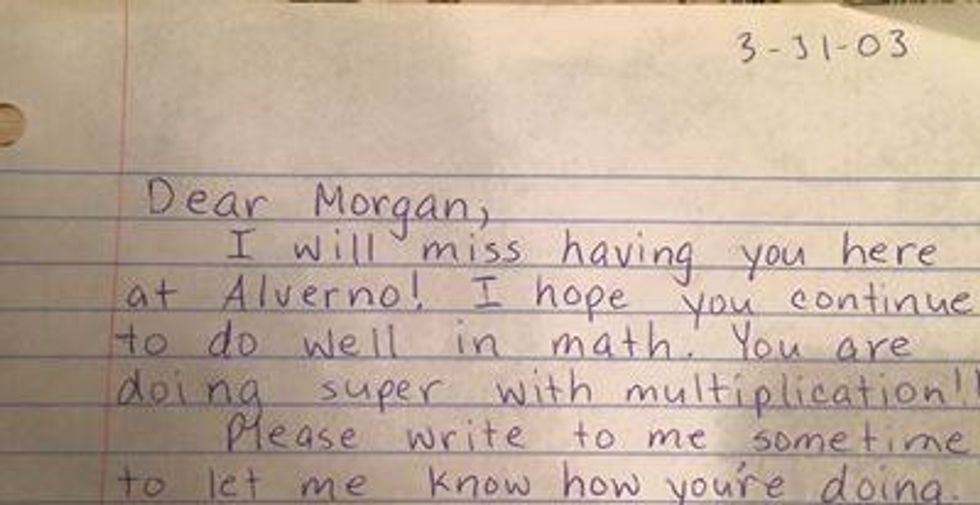 3-31-03
Dear Morgan,
I will miss having you here
at Alverno! I hope you continue
to do well in math. You are
doing super with multiplication!!
Please write to me sometime
to let me know how you're doing.